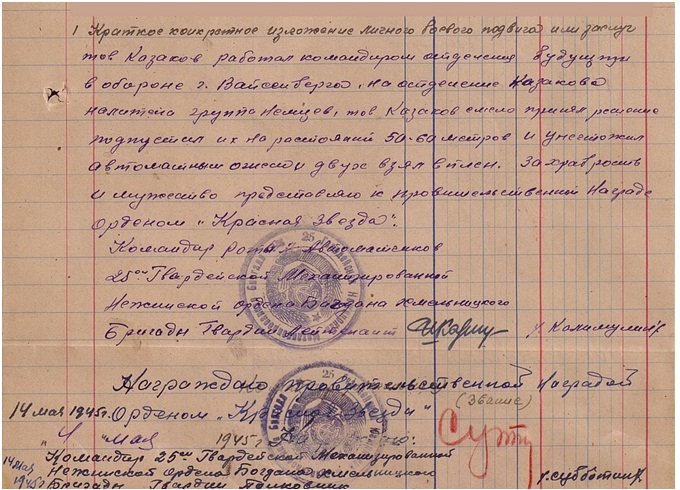 1 Краткое конкретное изложение личного боевого подвига или заслуг
тов Казаков работал командиром отделения будущи
в обороне г. Вайсенберга, на отделение Казакова
налитела группа Немцев, тов Казаков смело принял решение
подпустил их на растояний 50-60 метров и унечтожил
автоматным огнем и двух взял в плен. За храбрость
и мужество представляю к правительственной Награде
Орденом "Красная Звезда".
Командир роты Автоматчиков
25ой Гвардейской Механизированной
Нежинской ордена Богдана Хмельницкого
Бригады Гвардии Лейтенант /Калимулин/
Награждаю правительственной Наградой
14 мая 1945г. Орденом "Красная Звезда" (Звание)
"4" мая 1945г
Командир 25ой Гвардейской Механизированной
14 мая Нежинской Ордена Богдана Хмельницкого
1945г Бригады Гвардии Полковник /Субботин/